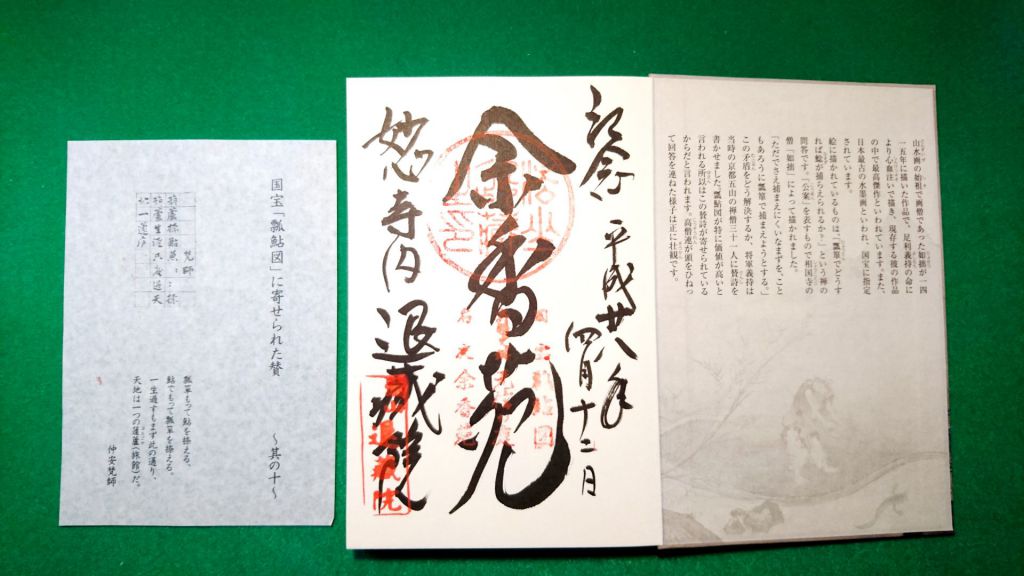 山水画の始祖で画僧であった如拙が一四
一五年に描いた作品で、足利義持の命に
より心血注いで描き、現存する彼の作品
の中で最高傑作といわれています。また、
日本最古の水墨画といわれ、国宝に指定
されています。
絵に描かれているものは、「瓢箪でどうす
れば鯰が捕らえられるか?」という禅の
問答です。「公案」を表すもので相国寺の
僧「如拙」によって描かれました。
「ただでさえ捕まえにくいなまずを、こと
もあろうに瓢箪で捕まえようとする。」
この矛盾をどう解決するか、将軍義持は
当時の京都五山の禅僧三十一人に賛詩を
書かせました。瓢鮎図が特に価値が高いと
言われる所以はこの賛詩が寄せられている
からだと言われます。高僧達が頭をひねっ
て回答を連ねた様子は正に壮観です。
記念 平成廿八年
四月十二日
余香苑
国宝瓢鮎図
名勝余香苑
妙心寺内 退蔵院
退蔵院
国宝「瓢鮎図」に寄せられた賛 〜其の十〜
梵師
瓢箪もって鮎を捺える、
鮎でもって瓢箪を捺える。
一生過すもまず此の通り、
天地は一つの蘧蘆(旅館)だ。
仲安梵師